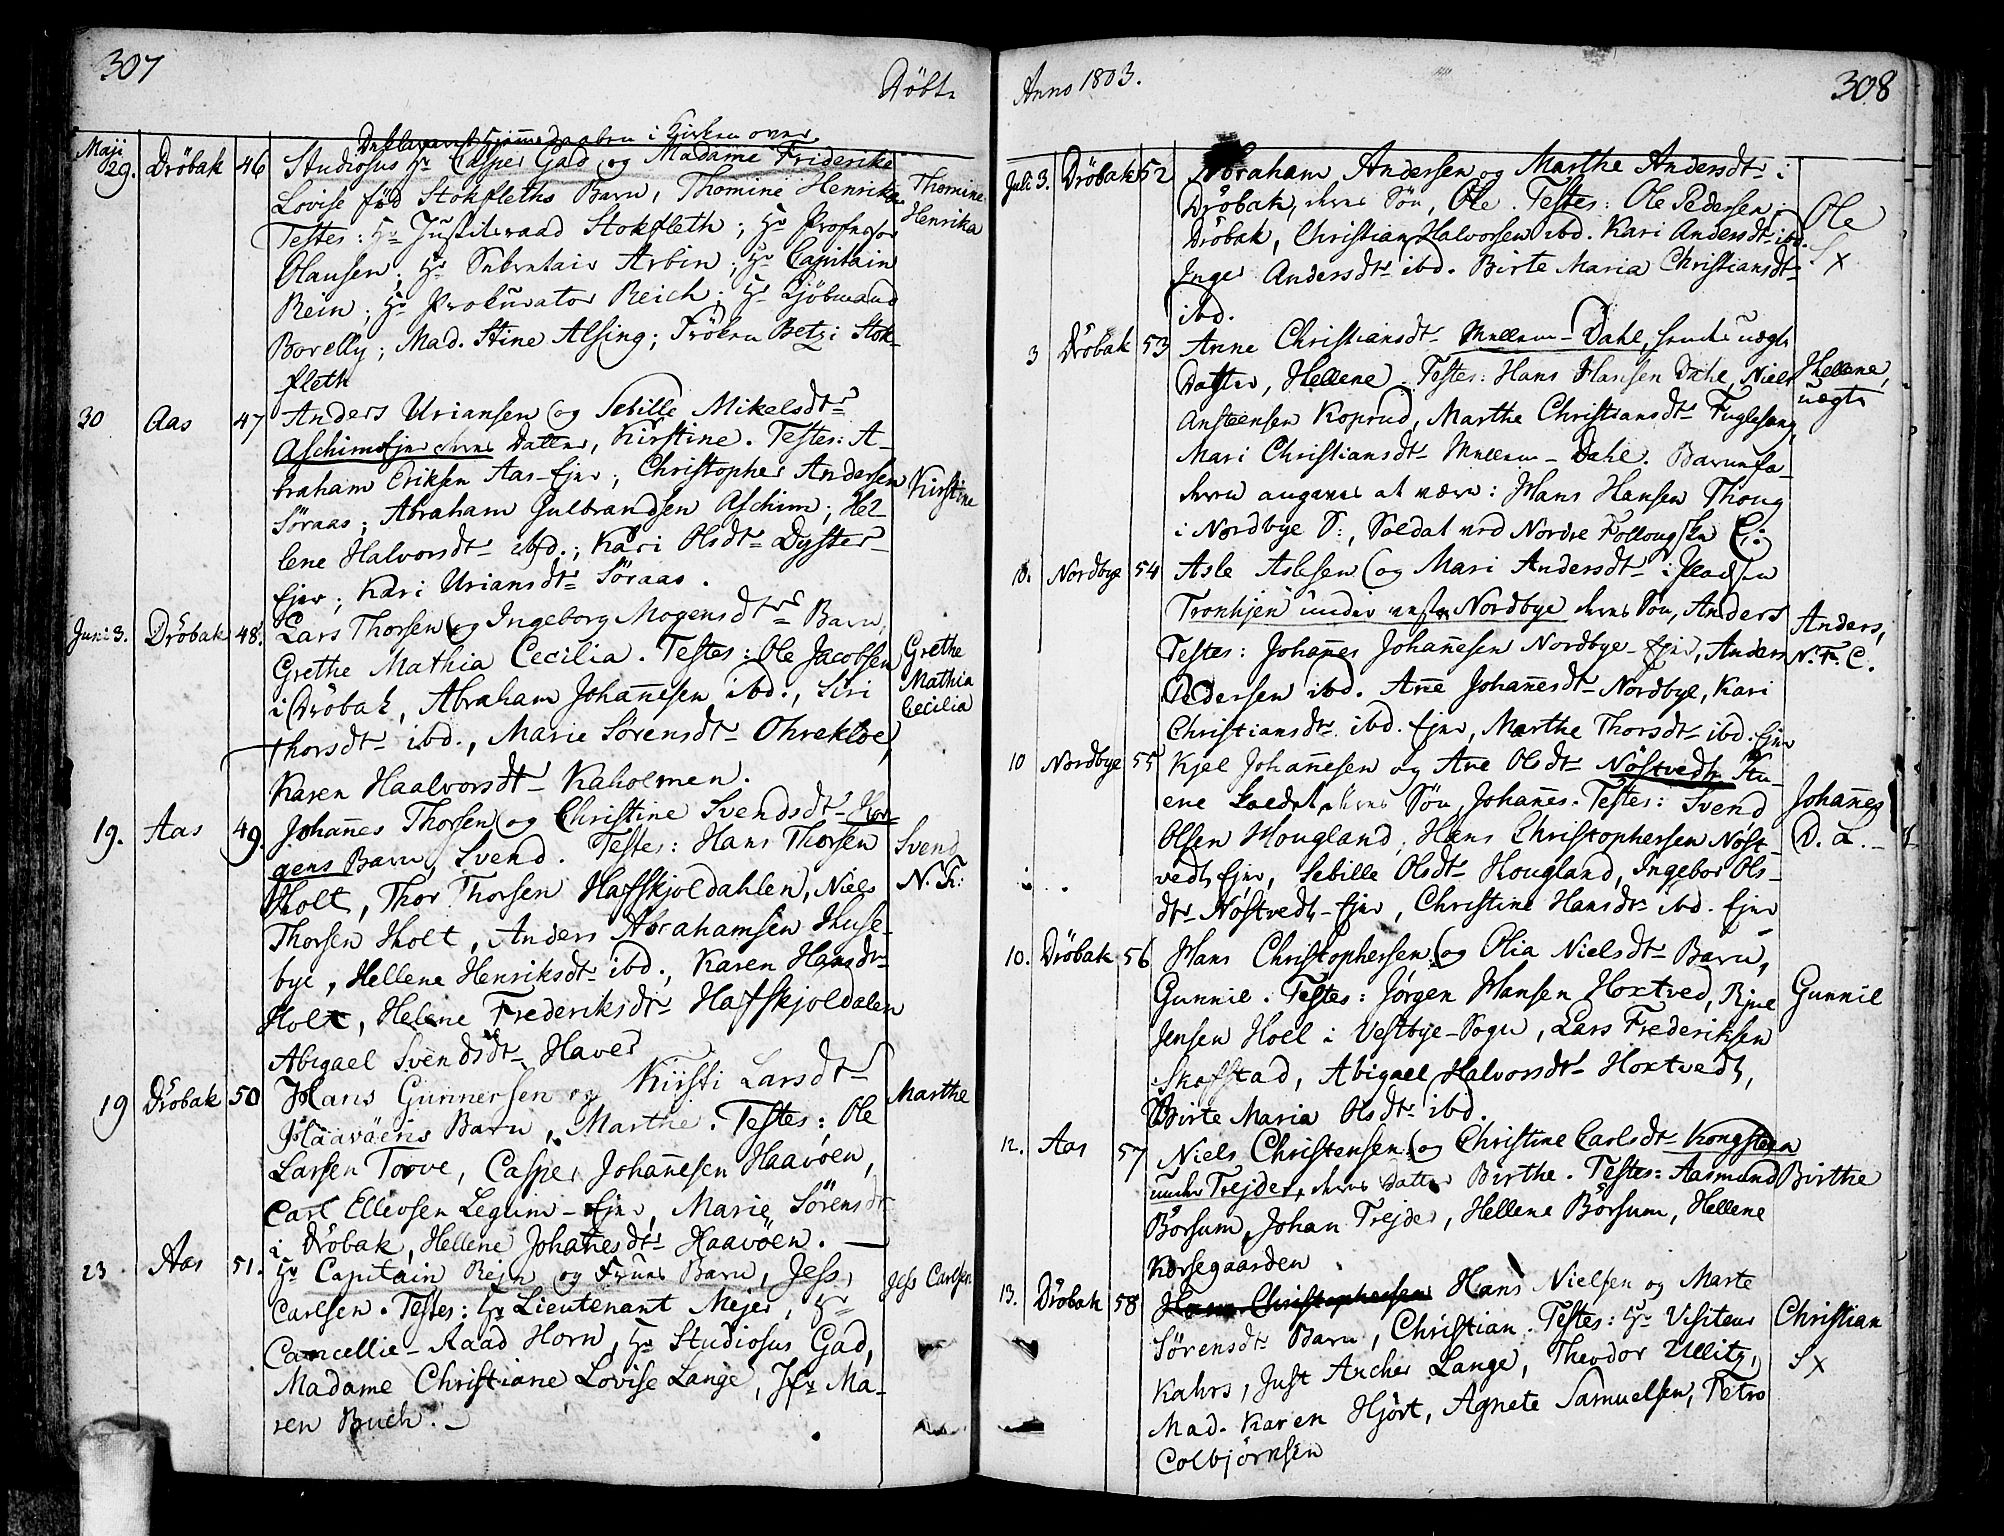 307
Döbte
Maji
29. Dröbak 46
Declareret Hjemmedaaben i Kirken over
Studiosus Hr Casper Gad og Madame Friderike
Lovise fød Stokfleths Barn, Thomine Henrika
Testes: Hr Justitsraad Stokfleth; Hr Professor
Olausen; Hr Secretair Arbin; Hr Capitain
Rein; Hr Prokurator Reich; Hr Kjöbmand
Borelly; Mad. Stine Alsing; Fröken Betzi Stok-
fleth
Thomine
Henrika
30 Aas 47
Anders Uriansen og Sebille Mikelsdtr
Aschimsejer deres Datter, Kirstine. Testes: A-
braham Eriksen Aas-Ejer; Christopher Andersen
Söraas; Abraham Gulbrandsen Aschim; Hel-
lene Halvorsdtr ibd.; Kari Olsdtr Dyster-
Ejer; Kari Uriansdtr Söraas.
Kirstine
Juni 3. Dröbak 48.
Lars Thorsen og Ingeborg Mogensdtrs Barn,
Grethe Mathia Cecilia. Testes: Ole Jacobsen
i Dröbak, Abraham Johanesen ibd., Siri
Thorsdtr ibd., Marie Sörensdtr Ohrekloe,
Karen Haalvorsdtr Kaholmen.
Grethe
Mathia
Cecilia
19. Aas 49.
Johanes Thorsen og Christine Svendsdtr Kor-
gens Barn, Svend. Testes: Hans Thorsen
Holt, Thor Thorsen Hafskjoldahlen, Niels
Thorsen Holt, Anders Abrahamsen Huse-
bye, Hellene Henriksdtr ibd., Karen Hansdtr
Holt, Helene Frederiksdtr Hafskjoldalen
Abigael Svendsdtr Haver
Svend
N. F.
19 Dröbak 50
Hans Gunnersen og Kirsti Larsdtr
Haavöens Barn, Marthe. Testes: Ole
Larsen Toove, Casper Johanesen Haavöen,
Carl Ellevsen Legum-Ejer, Marie Sörensdtr
i Dröbak, Hellene Johanesdtr Haavöen.
Marthe
23 Aas 51.
Hr Capitain Rejn og Frues Barn, Jess
Carlsen. Testes: Hr Lieutenant Mejer, Hr
Cancellie-Raad Horn, Hr Studiosus Gad,
Madame Christiane Lovise Lange, Jfr Ma-
ren Buch.
Jess Carlsen
Anno 1803.
308
Juli 3. Dröbak 52
Abraham Andersen og Marthe Andersdtr i
Dröbak, deres Sön, Ole. Testes: Ole Pedersen,
Dröbak, Christian Halvorsen ibd. Kari Andersdtr ibd.
Inger Andersdtr ibd. Birte Maria Christiansdtr
ibd.
Ole
S x
3 Dröbak 53
Anne Christiansdtr Mellem-Dahl, hendes uægte
Datter, Hellene. Testes: Hans Hansen Dahl, Niels
Ansteensen Koprud, Marthe Christiansdtr Fuglesang,
Mari Christiansdtr Mellem-Dahl. Barnefa-
deren angives at være: Hans Hansen Thoug
i Nordbye S:, Soldat ved Nordre Follougske C:
Hellene,
uægte
10. Nordbye 54
Asle Aslesen og Mari Andersdtr i Pladsen
Tronhjen under vestre Nordbye deres Sön, Anders
Testes: Johanes Johanesen Nordbye-Ejer, Anders
Pedersen ibd. Ane Johanesdtr Nordbye, Kari
Christiansdtr ibd. Ejer, Marthe Thorsdtr ibd. Ejer
Anders,
N. F. C.
10 Nordbye 55
Kjel Johanesen og Ane Olsdtr Nöstvedt
Soldat, deres Sön, Johanes. Testes: Svend
Olsen Hougland, Hans Christophersen Nöst-
vedt Ejer, Sebille Olsdtr Hougland, Ingebor Ols-
dtr Nöstvedt-Ejer, Christine Hansdtr ibd. Ejer
Johanes
D. L.
10. Dröbak 56
Hans Christophersen og Olia Nielsdtr Barn,
Gunnil. Testes: Jörgen Hansen Hoxtved, Rjer
Jensen Hoel i Vestbye-Sogn, Lars Frederiksen
Skafstad, Abigael Halvorsdtr Hoxtvedt,
Birte Maria Olsdtr ibd.
Gunnil
12. Aas 57
Niels Christensen og Christine Carlsdtr Kongsteen
under Trejder, deres Datter Birthe. Testes: Aasmund
Börsum, Johan Trejder, Hellene Börsum, Hellene
Korsegaarden
Birthe
13. Dröbak 58
Hans Christophersen Hans Nielsen og Marte
Sörensdtr Barn, Christian. Testes: Hr Visiteur
Kahrs, Just Ancher Lange, Theodor Ullitz,
Mad. Karen Hjört, Agnete Samuelsen, Petro
Colbjörnsen
Christian
S x